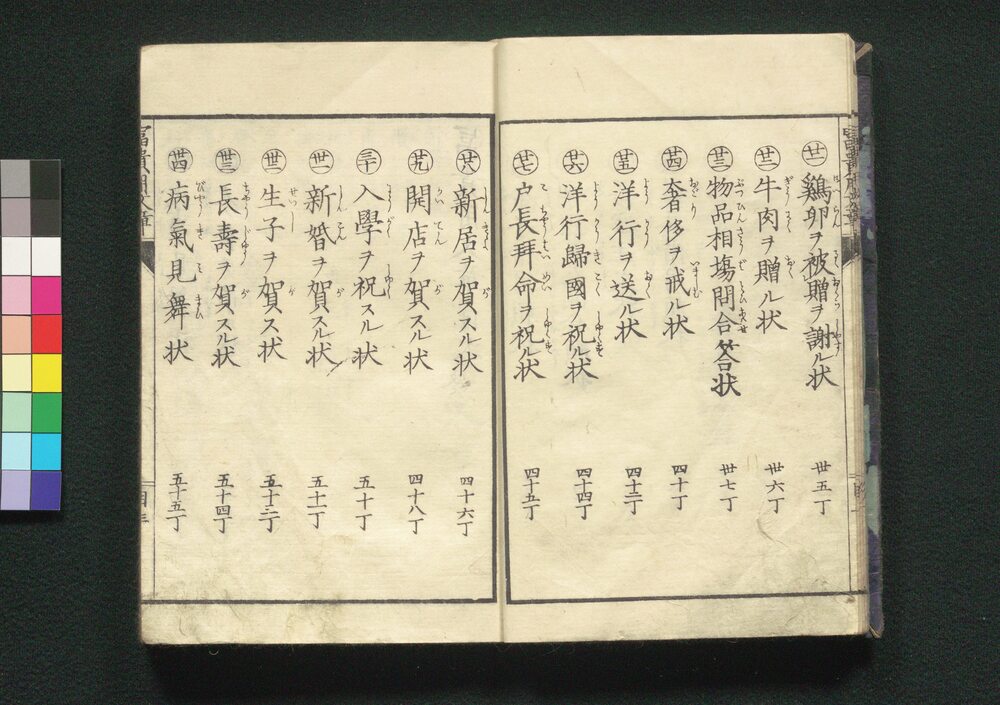 廿一 鷄卵ヲ被贈ヲ謝ル状 卅五丁
廿二 牛肉ヲ贈ル状 卅六丁
廿三 物品相塲問合答状 卅七丁
廿四 奢侈ヲ戒ル状 四十丁
廿五 洋行ヲ送ル状 四十二丁
廿六 洋行歸國ヲ祝ル状 四十四丁
廿七 戸長拜命ヲ祝ル状 四十五丁
廿八 新居ヲ賀スル状 四十六丁
廿九 開店ヲ賀スル状 四十八丁
三十 入學ヲ祝スル状 五十丁
卅一 新婚ヲ賀スル状 五十一丁
卅二 生子ヲ賀ス状 五十二丁
卅三 長壽ヲ賀スル状 五十四丁
卅四 病氣見舞状 五十五丁